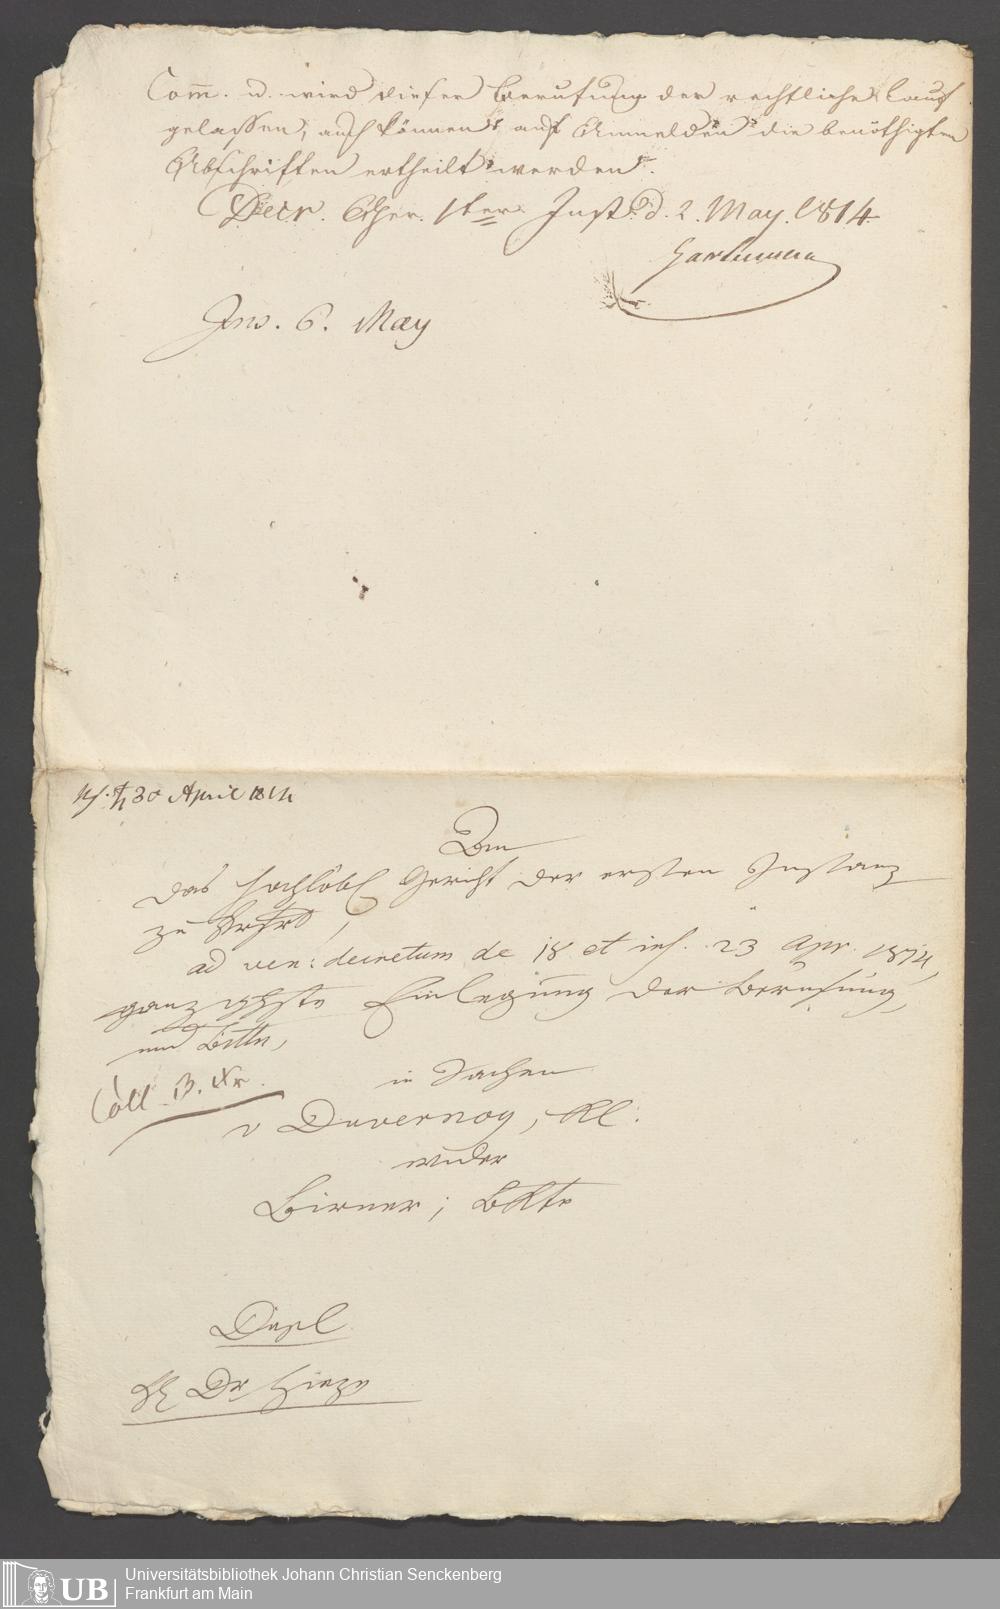 Com̅. u. wird dieser Berufung der rechtliche Lauf
gelassen, auch können auf Anmelden die benöthigten
Abschriften ertheilt werden.
Decr. 1ter Inst. d. 2. May. 1814.
Hartmann
Ins. 6. May
30 April 1814
An
das hochlöbl Gericht der ersten Instanz
zu
ad ven: decretum de 18 et ins. 23 Apr. 1814,
ganz Einlegung der Berufung,
und Bitte,
Coll
in Sachen
v Duvernoy, Kl:
wider
Birner; Bklte
Dupl
Dr
UB
Universitätsbibliothek Johann Christian Senckenberg
Frankfurt am Main